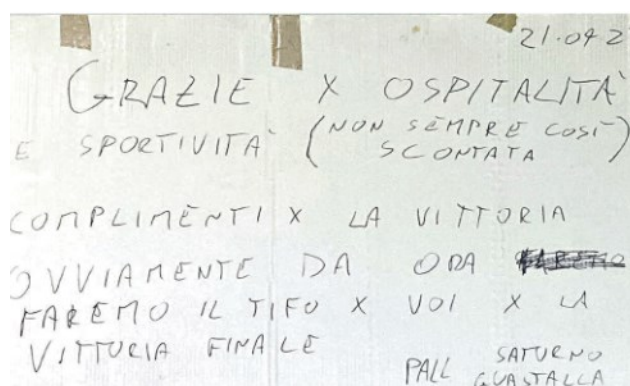 21.042
GRAZIE X OSPITALITÀ
E SPORTIVITA' (NON SEMPRE COSI'
SCONTATA)
COMPLIMENTI X LA VITTORIA
OVVIAMENTE DA ORA
FAREMO IL TIFO X VOI X LA
VITTORIA FINALE
PALL SATURNO
GUASTALLA